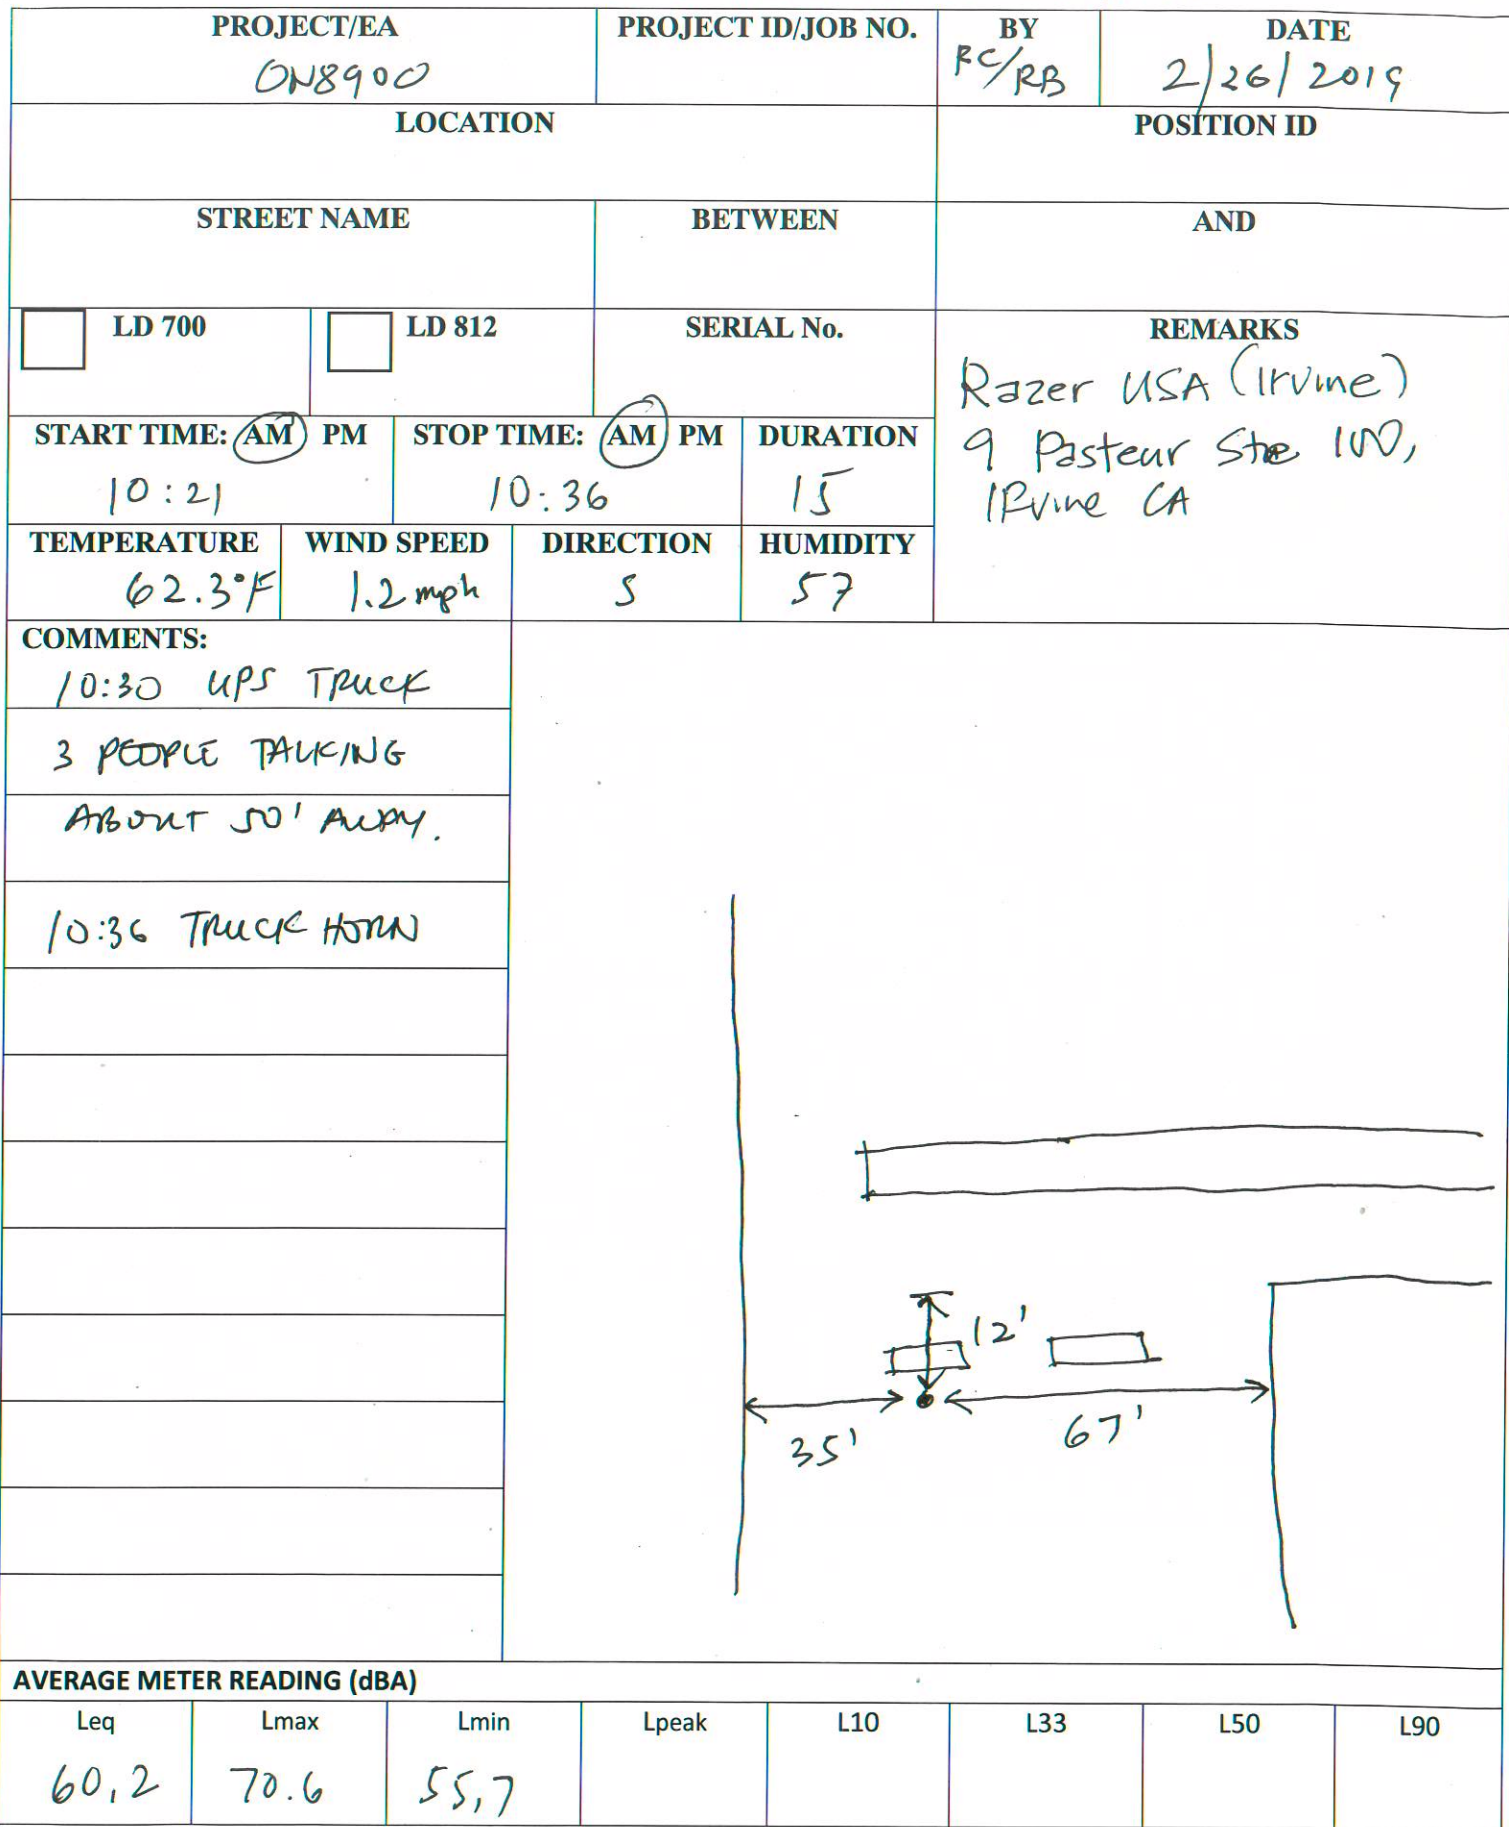 PROJECT/EA PROJECT ID/JOB NO. BY DATE
0N8900 RC/RB 2/26/2019
LOCATION POSITION ID
STREET NAME BETWEEN AND
LD 700 LD 812 SERIAL No. REMARKS
Razer USA (Irvine)
9 Pasteur Ste 100,
IRvine CA
START TIME: AM PM STOP TIME: AM PM DURATION
10:21 10:36 15
TEMPERATURE WIND SPEED DIRECTION HUMIDITY
62.3°F 1.2 mph S 57
COMMENTS:
10:30 UPS TRUCK
3 PEOPLE TALKING
ABOUT 50' AWAY.
10:36 TRUCK HORN
12'
35' 67'
AVERAGE METER READING (dBA)
Leq Lmax Lmin Lpeak L10 L33 L50 L90
60.2 70.6 55.7